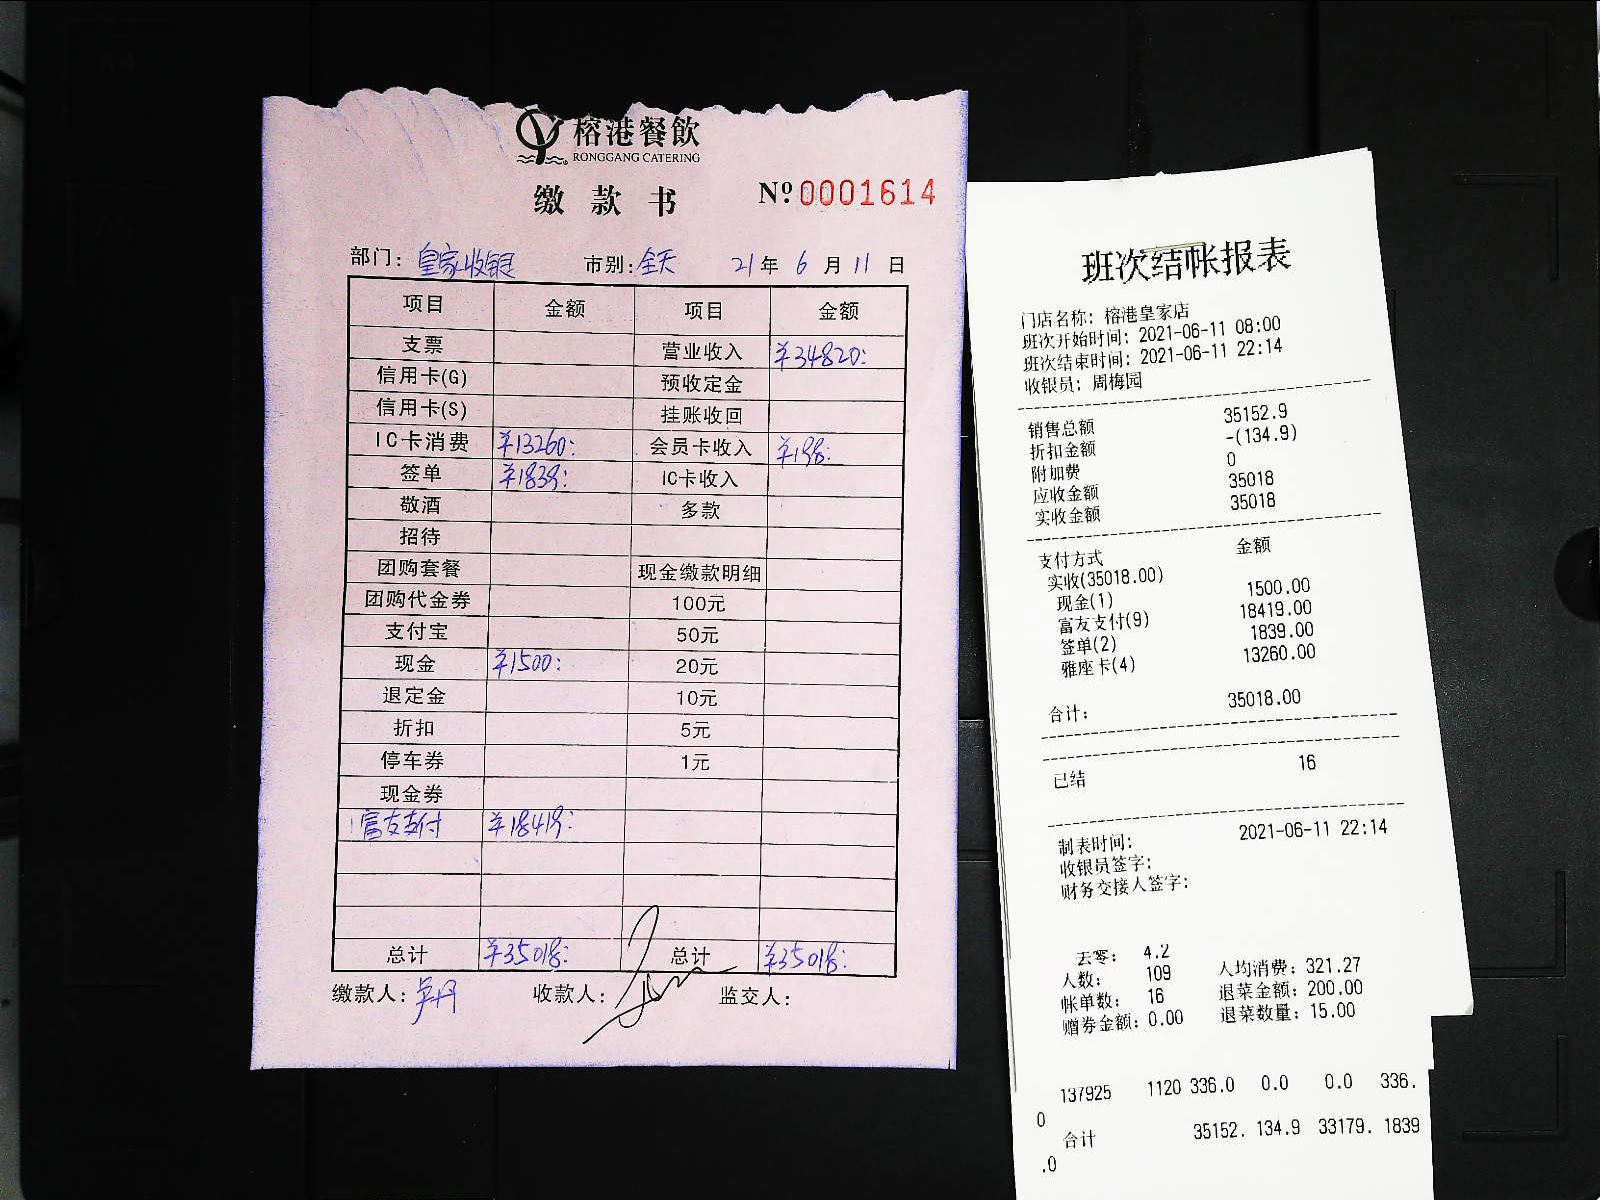 榕港餐飲
RONGGANG CATERING
缴款书 Nº 0001614
部门: 皇家收银 市别: 全天 21年 6月 11日
项目 金额 项目 金额
支票 营业收入 ¥34820:
信用卡(G) 预收定金
信用卡(S) 挂账收回
IC卡消费 ¥13260: 会员卡收入 ¥198:
签单 ¥1839: IC卡收入
敬酒 多款
招待
团购套餐 现金缴款明细
团购代金券 100元
支付宝 50元
现金 ¥1500: 20元
退定金 10元
折扣 5元
停车券 1元
现金券
富友支付 ¥18419:
总计 ¥35018: 总计 ¥35018:
缴款人: 收款人: 监交人:
班次结帐报表
门店名称: 榕港皇家店
班次开始时间: 2021-06-11 08:00
班次结束时间: 2021-06-11 22:14
收银员: 周梅园
销售总额 35152.9
折扣金额 -(134.9)
附加费 0
应收金额 35018
实收金额 35018
支付方式 金额
实收(35018.00)
现金(1) 1500.00
富友支付(9) 18419.00
签单(2) 1839.00
雅座卡(4) 13260.00
合计: 35018.00
已结 16
制表时间: 2021-06-11 22:14
收银员签字:
财务交接人签字:
去零: 4.2
人数: 109 人均消费: 321.27
帐单数: 16 退菜金额: 200.00
赠券金额: 0.00 退菜数量: 15.00
137925 1120 336.0 0.0 0.0 336.
0
合计 35152. 134.9 33179. 1839
.0